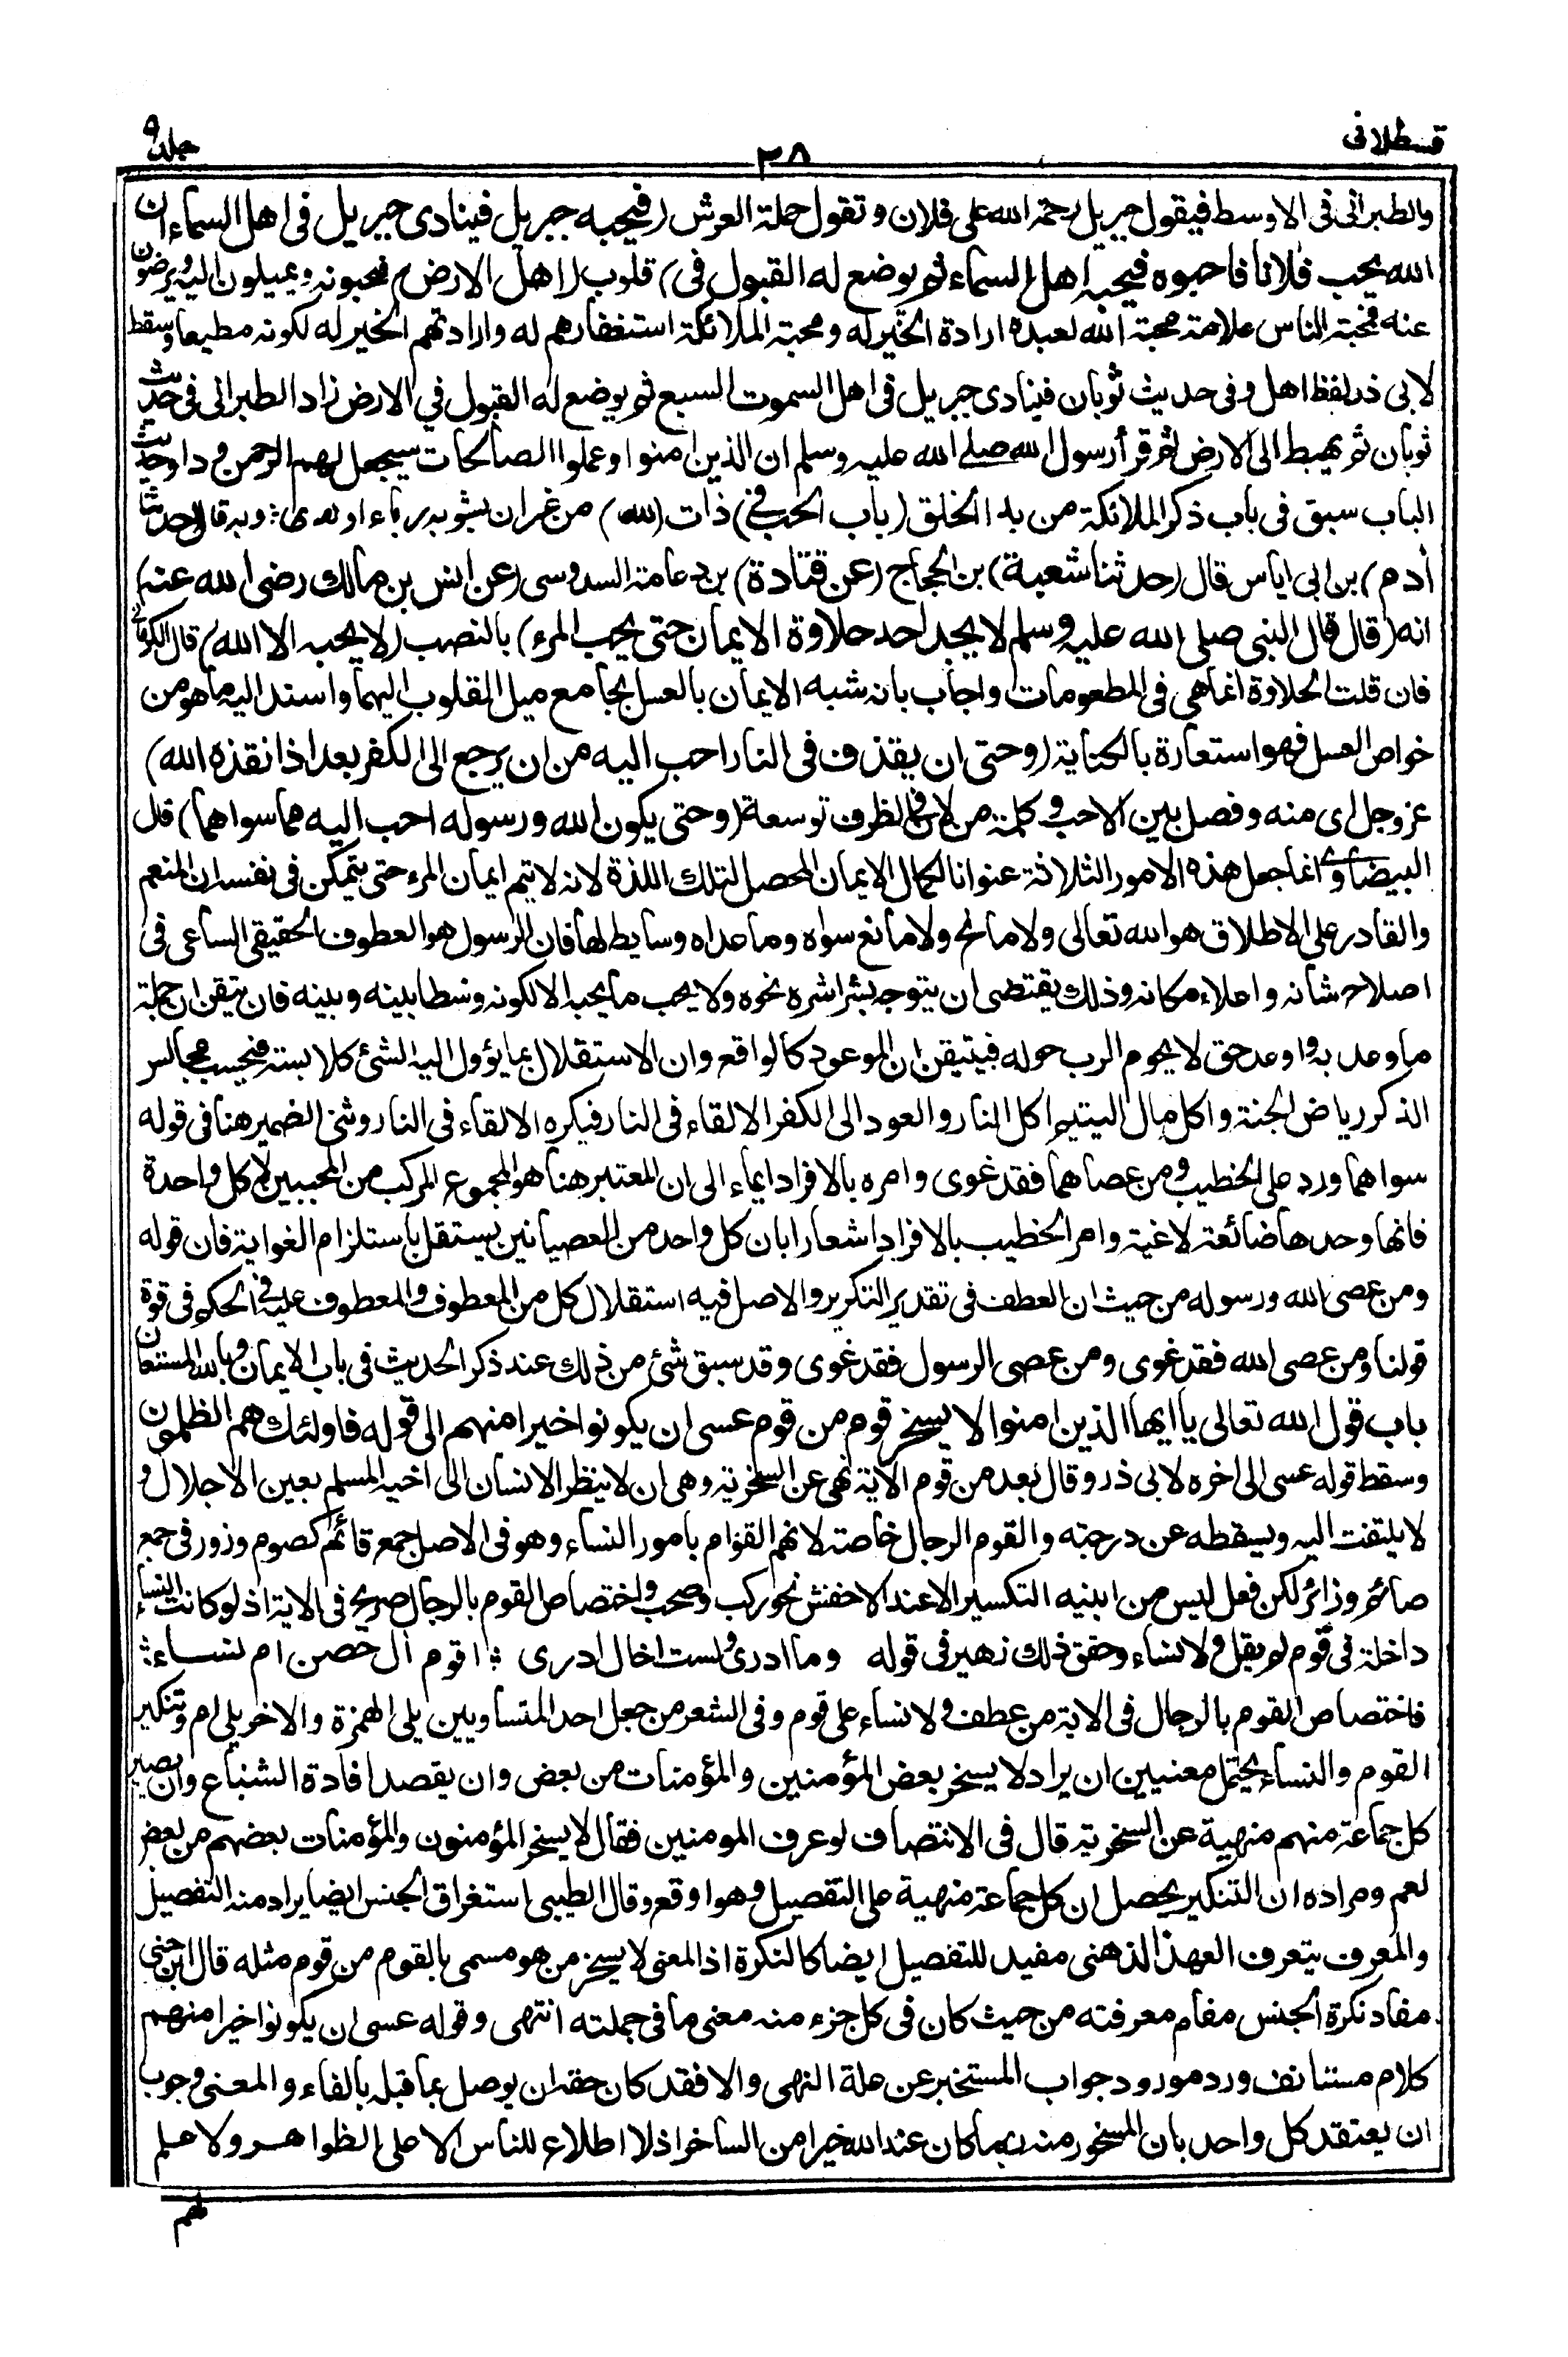 قسطلانى
٣٨
جلد ٩
والطبرانى فى الاوسط فيقول جبريل رحمة الله على فلان وتقول حملة العرش (فيحبه جبريل فينادى جبريل فى اهل السماء ان
الله يحب فلانا فاحبوه فيحبه اهل السماء ثم يوضع له القبول فى) قلوب (اهل الارض) فيحبونه ويميلون اليه ويرضون
عنه فمحبة الناس علامة محبة الله لعبده ارادة الخير له ومحبة الملائكة استغفارهم له وارادتهم الخير له لكونه مطيعا وسقط
لابى ذر لفظ اهل وفى حديث ثوبان فينادى جبريل فى اهل السموت السبع ثم يوضع له القبول في الارض زاد الطبرانى فى حديث
ثوبان ثم يهبط الى الارض ثم قرأ رسول الله صلے الله عليه وسلم ان الذين امنوا وعملوا الصالحات سيجعل لهم الرحمن ودا وحديث
الباب سبق فى باب ذكر الملائكة من بدء الخلق (باب الحب فى) ذات (الله) من غير ان يشوبه رياء او هوى ؛ وبه قال (حدثنا
أدم) بن ابى اياس قال (حدثنا شعبة) بن الحجاج (عن قتادة) بن دعامة السدوسى (عن انس بن مالك رضى الله عنه)
انه (قال قال النبى صلى الله عليه وسلم لا يجد احد حلاوة الايمان حتى يحب المرء) بالنصب (لا يحبه الا الله) قال الكرمانى
فان قلت الحلاوة انما هى فى المطعومات واجاب بانه شبه الايمان بالعسل بجامع ميل القلوب اليهما واسند اليه ما هو من
خواص العسل فهو استعارة بالكناية (وحتى ان يقذف فى النار احب اليه من ان يرجع الى الكفر بعد اذ انقذه الله)
عز وجل اى منه وفصل بين الاحب وكلمة من لان فى الظرف توسعة (وحتى يكون الله ورسوله احب اليه مما سواهما) قال
البيضاوى انما جعل هذه الامور الثلاثة عنوانا لكمال الايمان المحصل لتلك اللذة لانه لا يتم ايمان المرء حتى يتمكن فى نفسه ان المنعم
والقادر على الاطلاق هو الله تعالى ولا مانح ولا مانع سواه وما عداه وسايط لها فان الرسول هو العطوف الحقيقى الساعى فى
اصلاح شانه واعلاء مكانه وذلك يقتضى ان يتوجه بشراشره نحوه ولا يحب ما يحبه الا لكونه وسطا بينه وبينه فان تيقن ان جملة
ما وعد به واوعد حق لا يحوم الريب حوله فيتيقن ان الموعود كالواقع وان الاستقلال بما يؤول اليه الشئ كلابسته فيحسب مجالس
الذكر رياض الجنة واكل مال اليتيم اكل النار والعود الى الكفر الالقاء فى النار فيكره الالقاء فى النار وثنى الضمير هنا فى قوله
سواهما ورد على الخطيب ومن عصاهما فقد غوى وامره بالافراد ايماء الى ان المعتبر هنا هو المجموع المركب من المحبتين لا كل واحدة
فانها وحدها ضائعة لاغية وامر الخطيب بالافراد اشعارا بان كل واحد من العصيانين يستقل باستلزام الغواية فان قوله
ومن عصى الله ورسوله من حيث ان العطف فى تقدير التكرير والاصل فيه استقلال كل من المعطوف والمعطوف عليه فى الحكم فى قوة
قولنا ومن عصى الله فقد غوى ومن عصى الرسول فقد غوى وقد سبق شئ من ذلك عند ذكر الحديث فى باب الايمان وبالله المستعان
باب قول الله تعالى يا ايها الذين امنوا لا يسخر قوم من قوم عسى ان يكونوا خيرا منهم الى قوله فاولئك هم الظلمون
وسقط قوله عسى الى اخره لابى ذر وقال بعد من قوم الاية نهى عن السخرية وهى ان لا ينظر الانسان الى اخيه المسلم بعين الاجلال و
لا يلتفت اليه ويسقطه عن درجته والقوم الرجال خاصة لانهم القوام بامور النساء وهو فى الاصل جمع قائم كصوم وزور فى جمع
صائم وزائر لكن فعل ليس من ابنيه التكسير الا عند الاخفش نحو ركب وصحب واختصاص القوم بالرجال صريح فى الاية اذ لو كانت النساء
داخلة فى قوم لم يقل ولا نساء وحقق ذلك زهير فى قوله وما ادرى ولست اخال ادرى ؛ اقوم ال حصن ام نساء ؛
فاختصاص القوم بالرجال فى الاية من عطف ولا نساء على قوم وفى الشعر من جعل احد المتساويين يلى الهمزة والاخر يلى ام وتنكير
القوم والنساء يحتمل معنيين ان يراد لا يسخر بعض المؤمنين والمؤمنات من بعض وان يقصد افادة الشياع وان يصير
كل جماعة منهم منهية عن السخرية قال فى الانتصاف لو عرف المومنين فقال لا يسخر المؤمنون والمؤمنات بعضهم من بعض
لعم ومراده ان التنكير يحصل ان كل جماعة منهية على التفصيل وهو اوقع وقال الطيبى استغراق الجنس ايضا يراد منه التفصيل
والمعرف بتعرف العهد الذهنى مفيد للتفصيل ايضا كالنكرة اذ المعنى لا يسخر من هو مسمى بالقوم من قوم مثله قال ابن جنى
مفاد نكرة الجنس مفام معرفته من حيث كان فى كل جزء منه معنى ما فى جملته انتهى وقوله عسى ان يكونوا خيرا منهم
كلام مستانف ورد مورد جواب المستخبر عن علة النهى والا فقد كان حقه ان يوصل بما قبله بالفاء والمعنى وجوب
ان يعتقد كل واحد بان المسخور منه ربما كان عند الله خيرا من الساخر اذ لا اطلاع للناس الا على الظواهر ولا علم
لهم